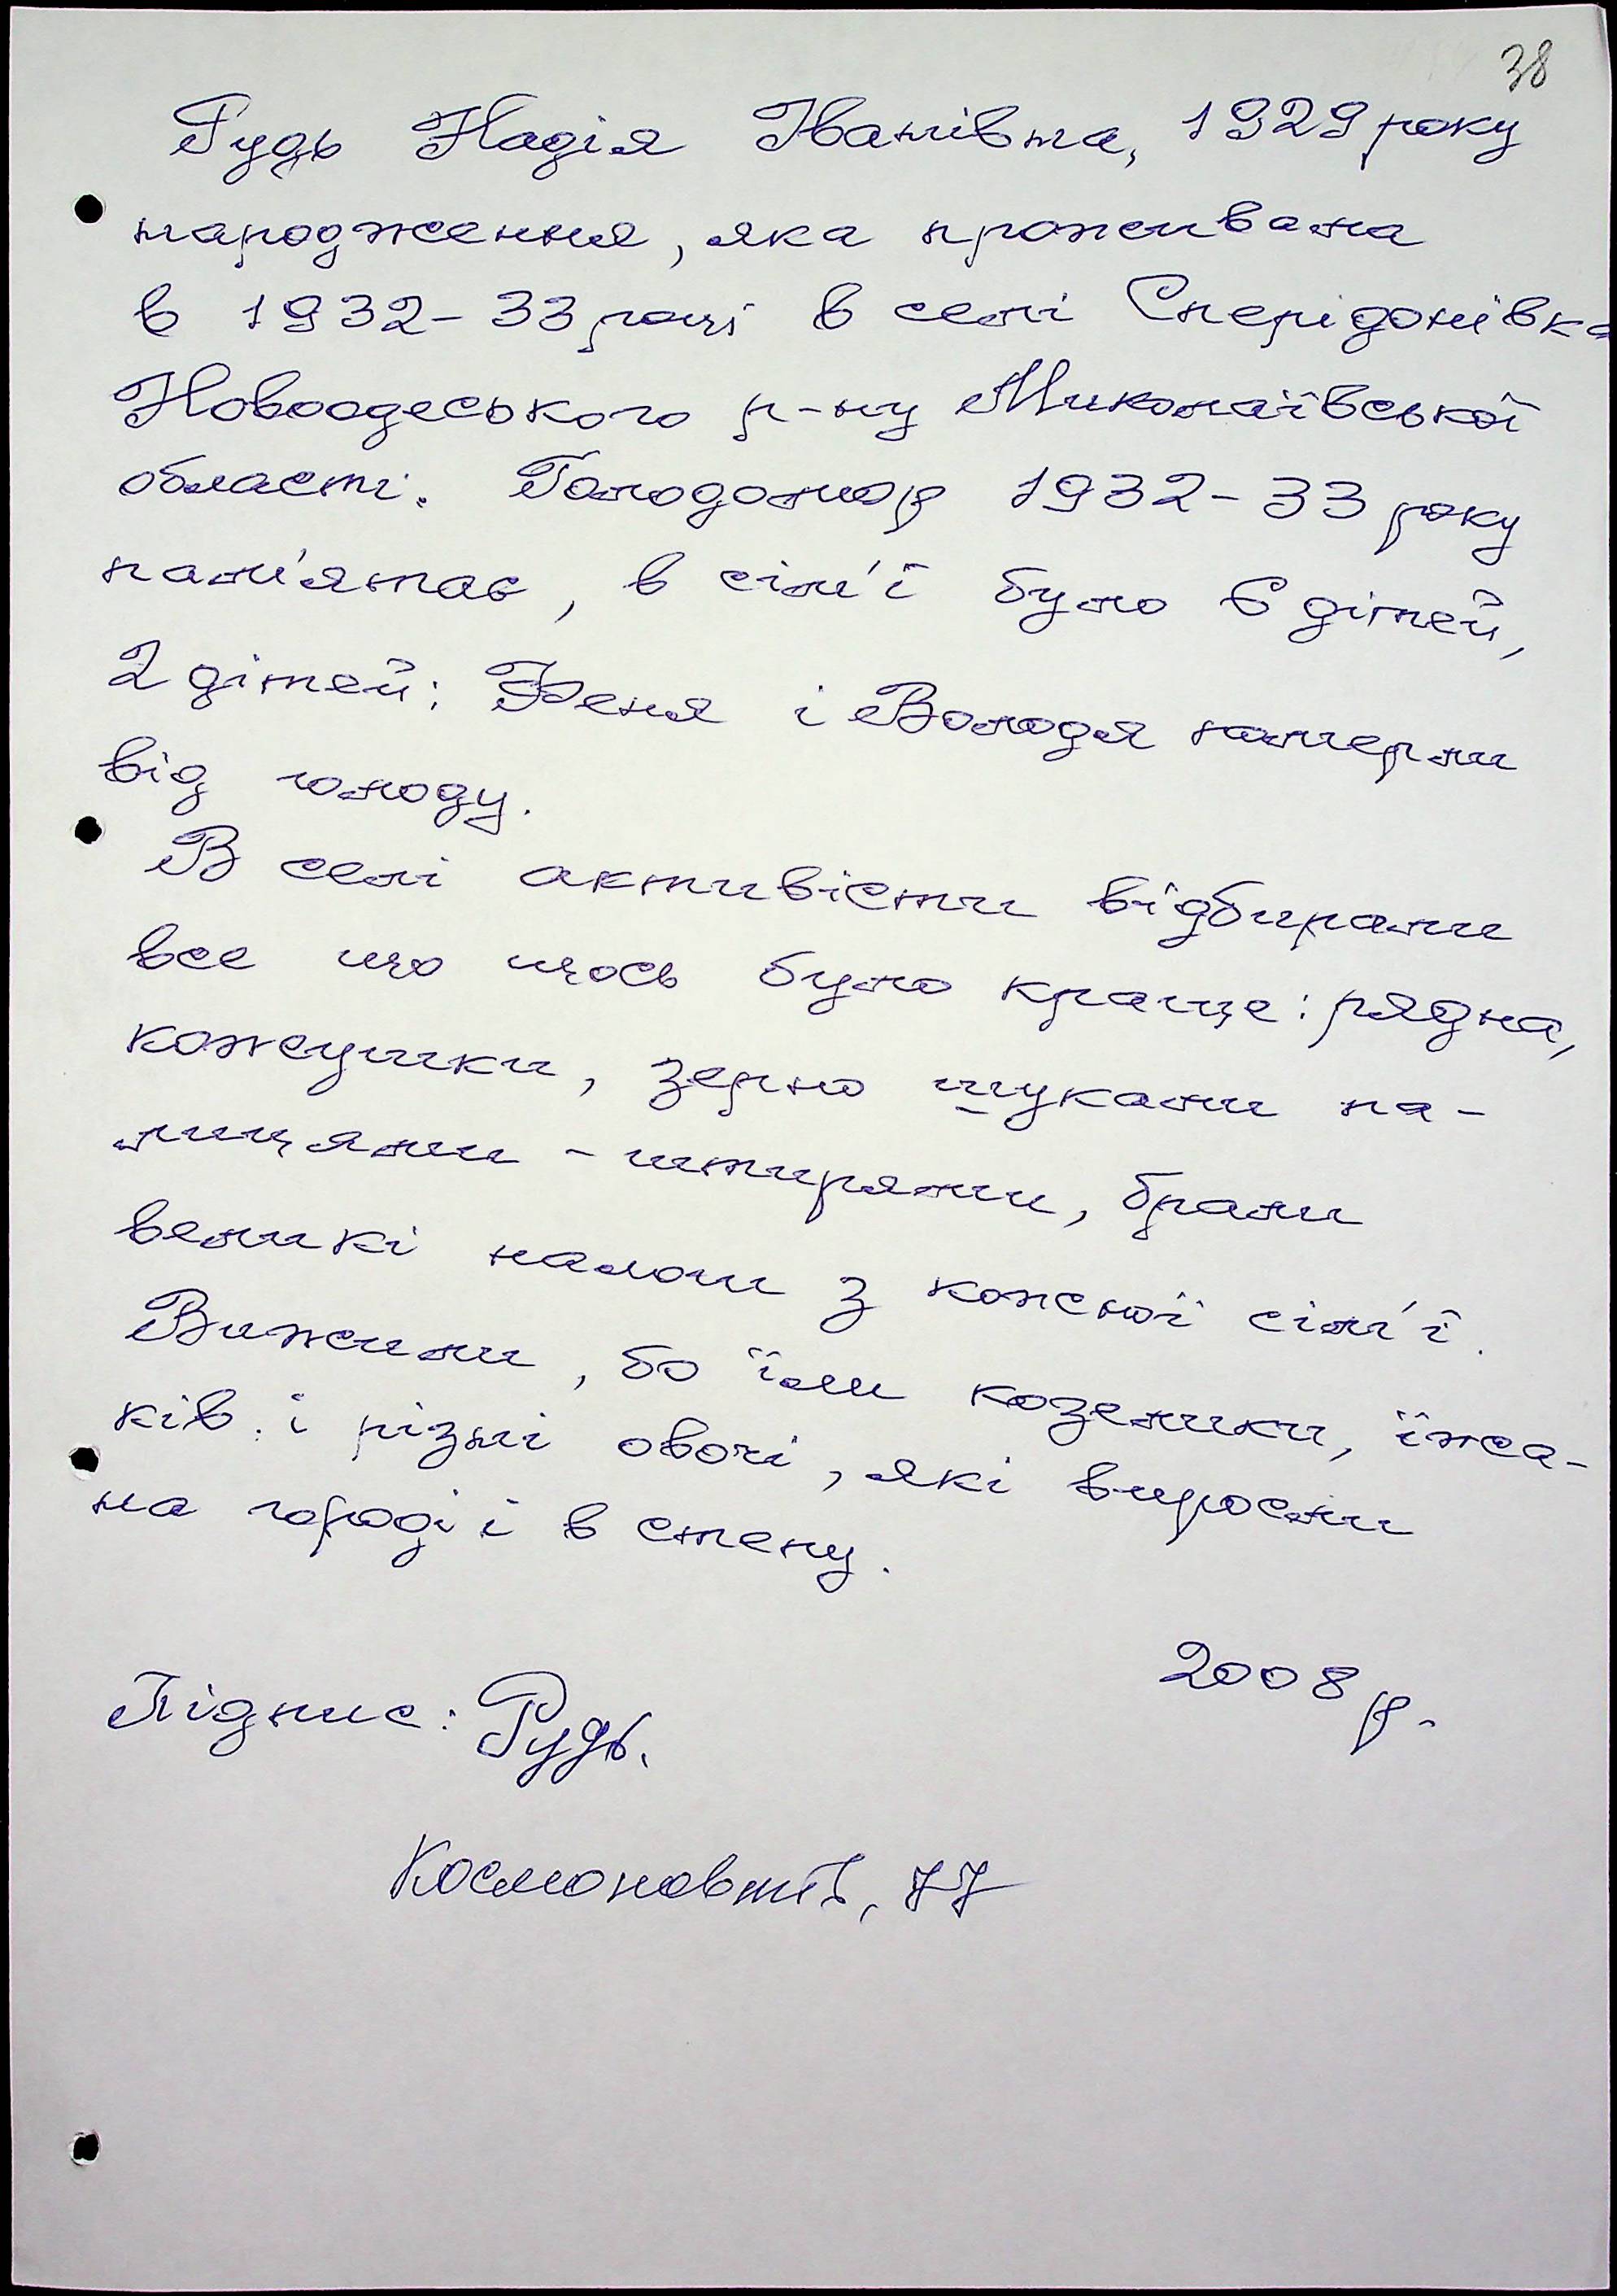 38
Рудь Надія Іванівна, 1929 року
народження, яка проживала
в 1932-33 році в селі Сперідонівка
Новоодеського р-ну Миколаївської
області. Голодомор 1932-33 року
пам'ятає, в сім'ї було 6 дітей,
2 дітей: Феня і Володя померли
від голоду.
В селі активісти відбирали
все що щось було краще: рядна,
кожушки, зерно шукали па-
лицями - штирями, брали
великі налоги з кожної сім'ї.
Вижили, бо їли козелики, їжа-
ків. і різні овочі, які виросли
на городі і в степу.
2008 р.
Підпис: Рудь.
Космонавтів, 77